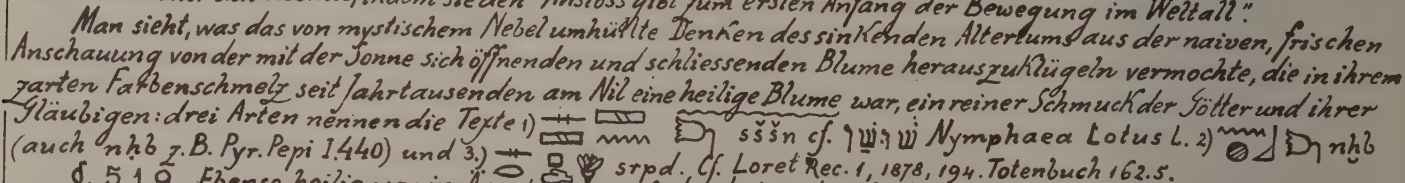 indem sie den "Anstoss gibt zum ersten Anfang der Bewegung im Weltall".
Man sieht, was das von mystischem Nebel umhüllte Denken des sinkenden Altertums aus der naiven, frischen
Anschauung von der mit der Sonne sich öffnenden und schliessenden Blume herauszuklügeln vermochte, die in ihrem
zarten Farbenschmelz seit Jahrtausenden am Nil eine heilige Blume war, ein reiner Schmuck der Götter und ihrer
Gläubigen: drei Arten nennen die Texte 1) 𓊃 𓈙 𓈙 𓈖 𓆷 sššn cf. שׁוּשָׁן Nymphaea Lotus L. 2) nḫb
(auch nḥb z.B. Pyr. Pepi I.440) und 3.) srpd. Cf. Loret Rec. 1, 1878, 194. Totenbuch 162.5.
Ebenso heilig war in